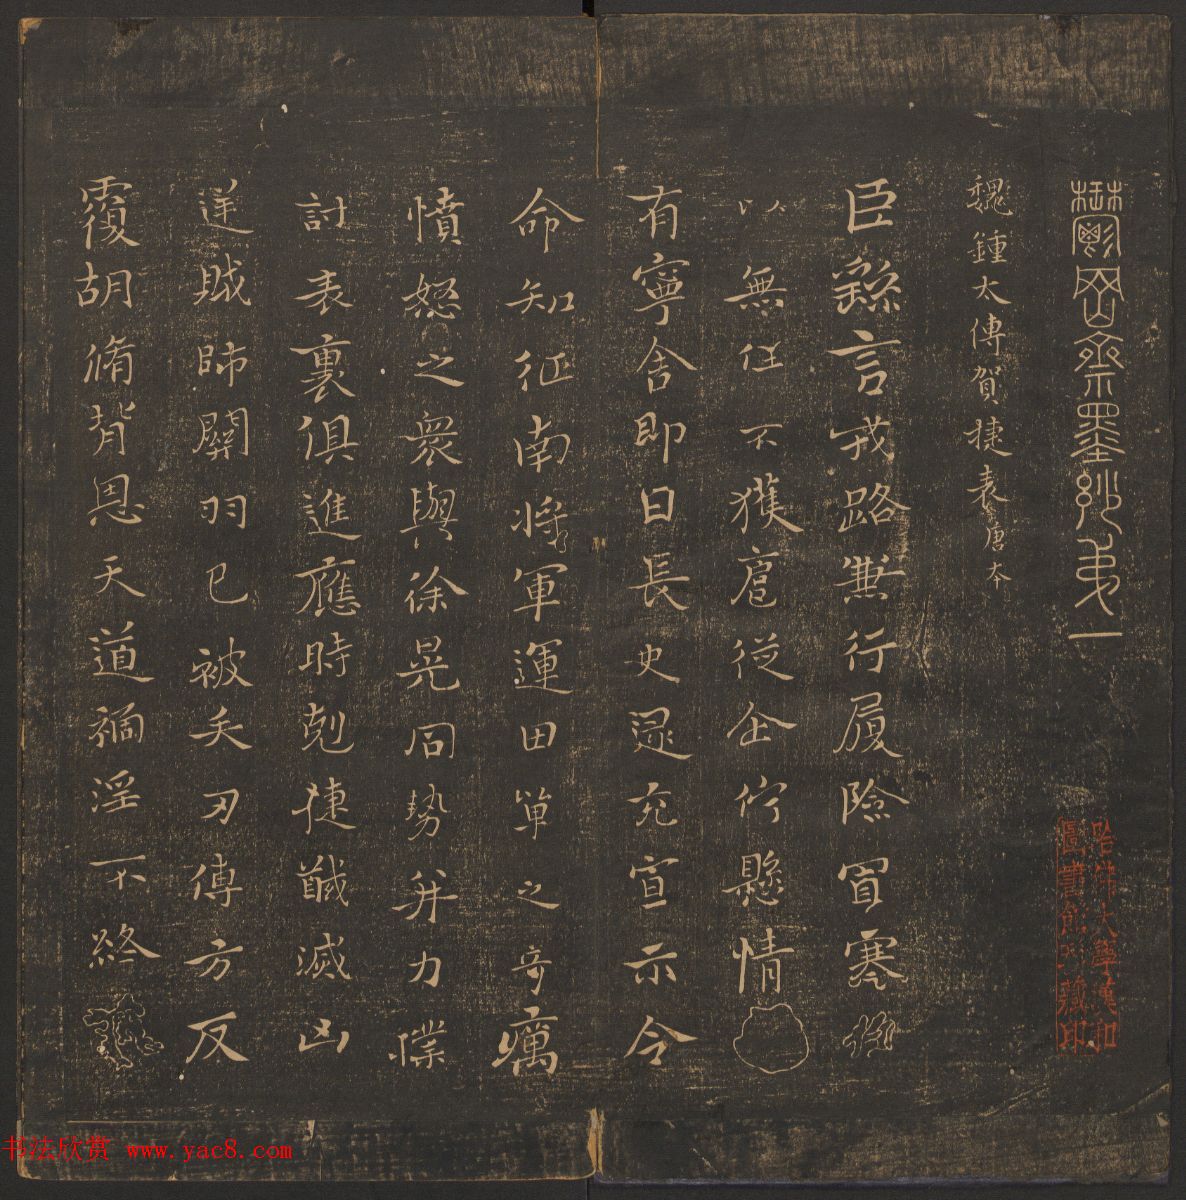 鬱岡齋墨妙第一
魏鍾太傅賀捷表唐本
臣繇言戎路兼行履險冒寒
以無任不獲扈從企佇懸情
有寧舍即日長史逯充宣示令
命知征南將軍運田單之奇厲
憤怒之衆與徐晃同勢并力撲
討表裏俱進應時剋捷馘滅凶
逆賊帥關羽已被矢刃傅方反
覆胡脩背恩天道禍淫不終
哈佛大學漢和
圖書館珍藏印
书法欣赏 www.yac8.com